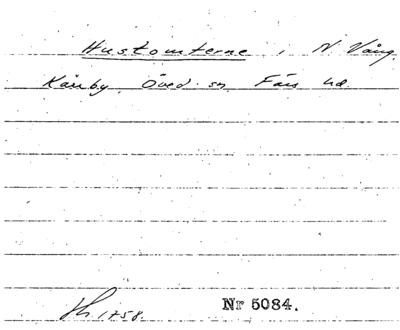 Hustomterne i N. Vång.
Kärby Öved sn Färs hd.
1758.
Nr 5084.